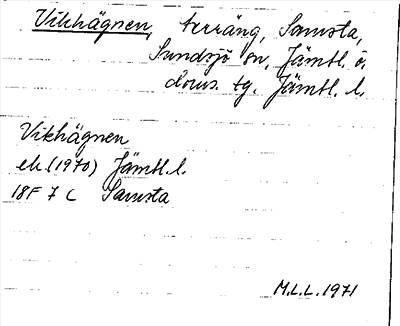 Vikhägnen, terräng, Samsta,
Sundsjö sn, Jämtl. ö.
doms. tg. Jämtl. l.
Vikhägnen
ek. (1970) Jämtl. l.
18F 7 C Samsta
M.L.L. 1971